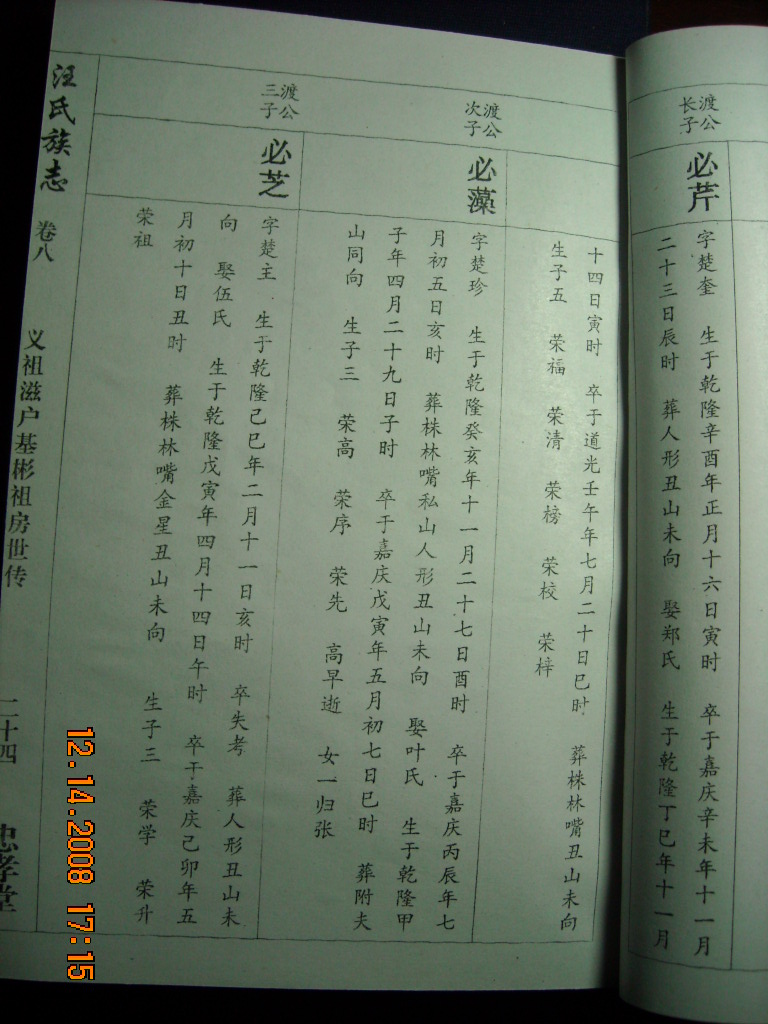 渡公长子
必芹
字楚奎 生于乾隆辛酉年正月十六日寅时 卒于嘉庆辛未年十一月
二十三日辰时 葬人形丑山未向 娶郑氏 生于乾隆丁巳年十一月
十四日寅时 卒于道光壬午年七月二十日巳时 葬株林嘴丑山未向
生子五 荣福 荣清 荣榜 荣校 荣梓
渡公次子
必藻
字楚珍 生于乾隆癸亥年十一月二十七日酉时 卒于嘉庆丙辰年七
月初五日亥时 葬株林嘴私山人形丑山未向 娶叶氏 生于乾隆甲
子年四月二十九日子时 卒于嘉庆戊寅年五月初七日巳时 葬附夫
山同向 生子三 荣高 荣序 荣先 高早逝 女一归张
渡公三子
必芝
字楚主 生于乾隆己巳年二月十一日亥时 卒失考 葬人形丑山未
向 娶伍氏 生于乾隆戊寅年四月十四日午时 卒于嘉庆己卯年五
月初十日丑时 葬株林嘴金星丑山未向 生子三 荣学 荣升
荣祖
汪氏族志 卷八 义祖滋户基彬祖房世传 二十四 忠孝堂
12.14.2008 17:15